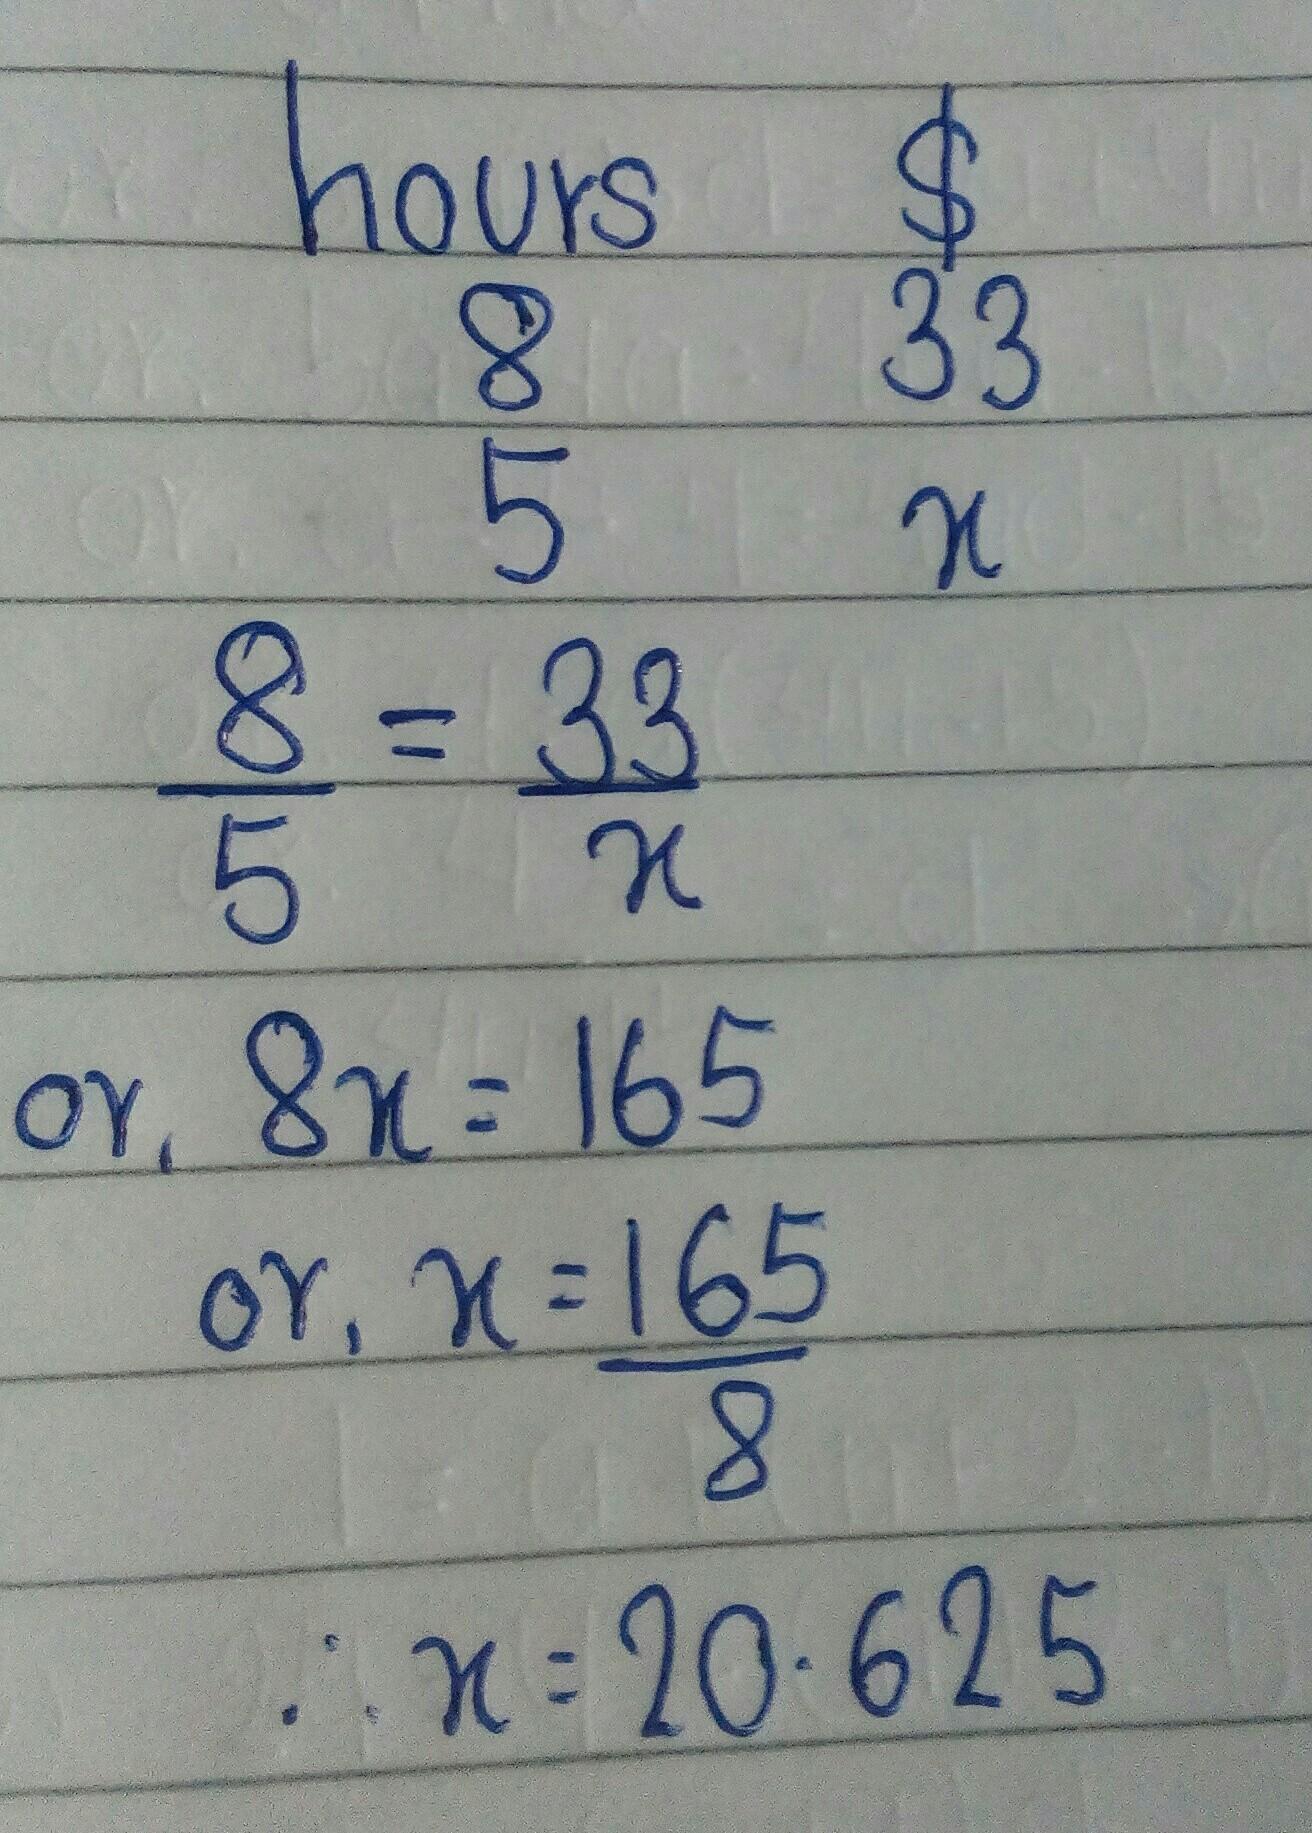 hours $
8 33
5 x
8/5 = 33/x
or, 8x = 165
or, x = 165/8
∴ x = 20.625